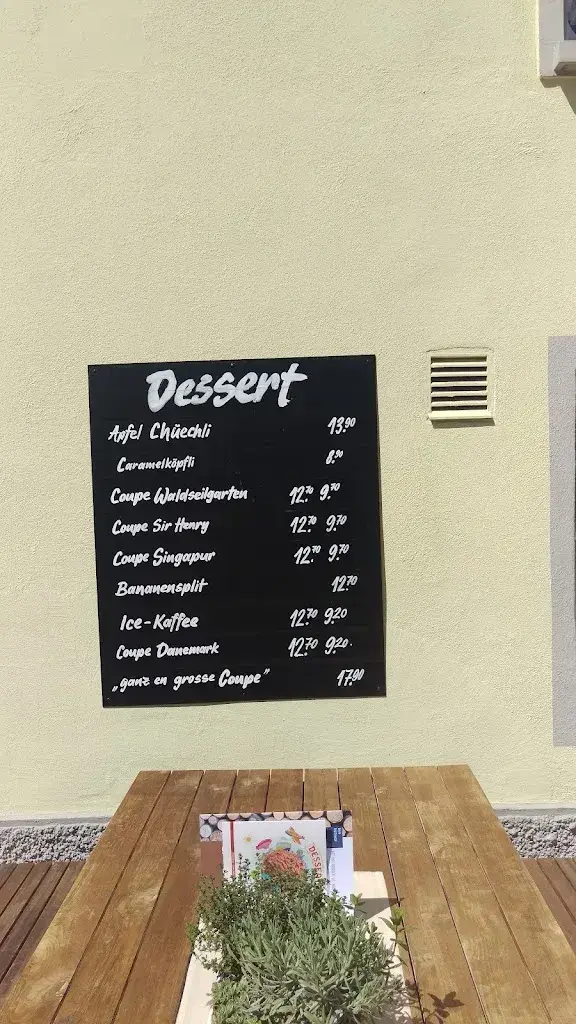 Dessert
Apfel Chüechli 13.90
Caramelköpfli 8.90
Coupe Waldseilgarten 12.70 9.70
Coupe Sir Henry 12.70 9.70
Coupe Singapur 12.70 9.70
Bananensplit 12.70
Ice-Kaffee 12.70 9.20
Coupe Danemark 12.70 9.20.
„ganz en grosse Coupe" 17.90
DESSERT